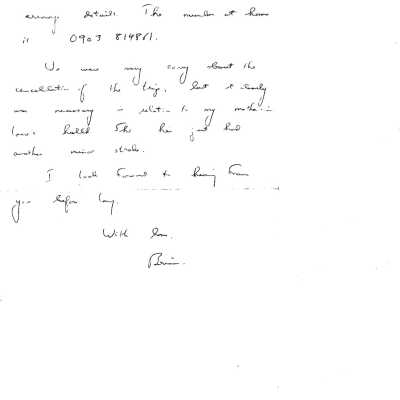 arrange details. The number at home
is 0903 814811.
We were very sorry about the
cancellation of the trip, but it really
was necessary in relation to my mother-in
law's health. She has just had
another minor stroke.
I look forward to hearing from
you before long.
With love.
Brian.